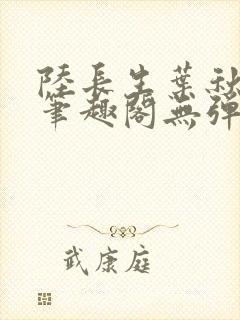 陸長生葉秋
筆趣閣無彈
武康庭